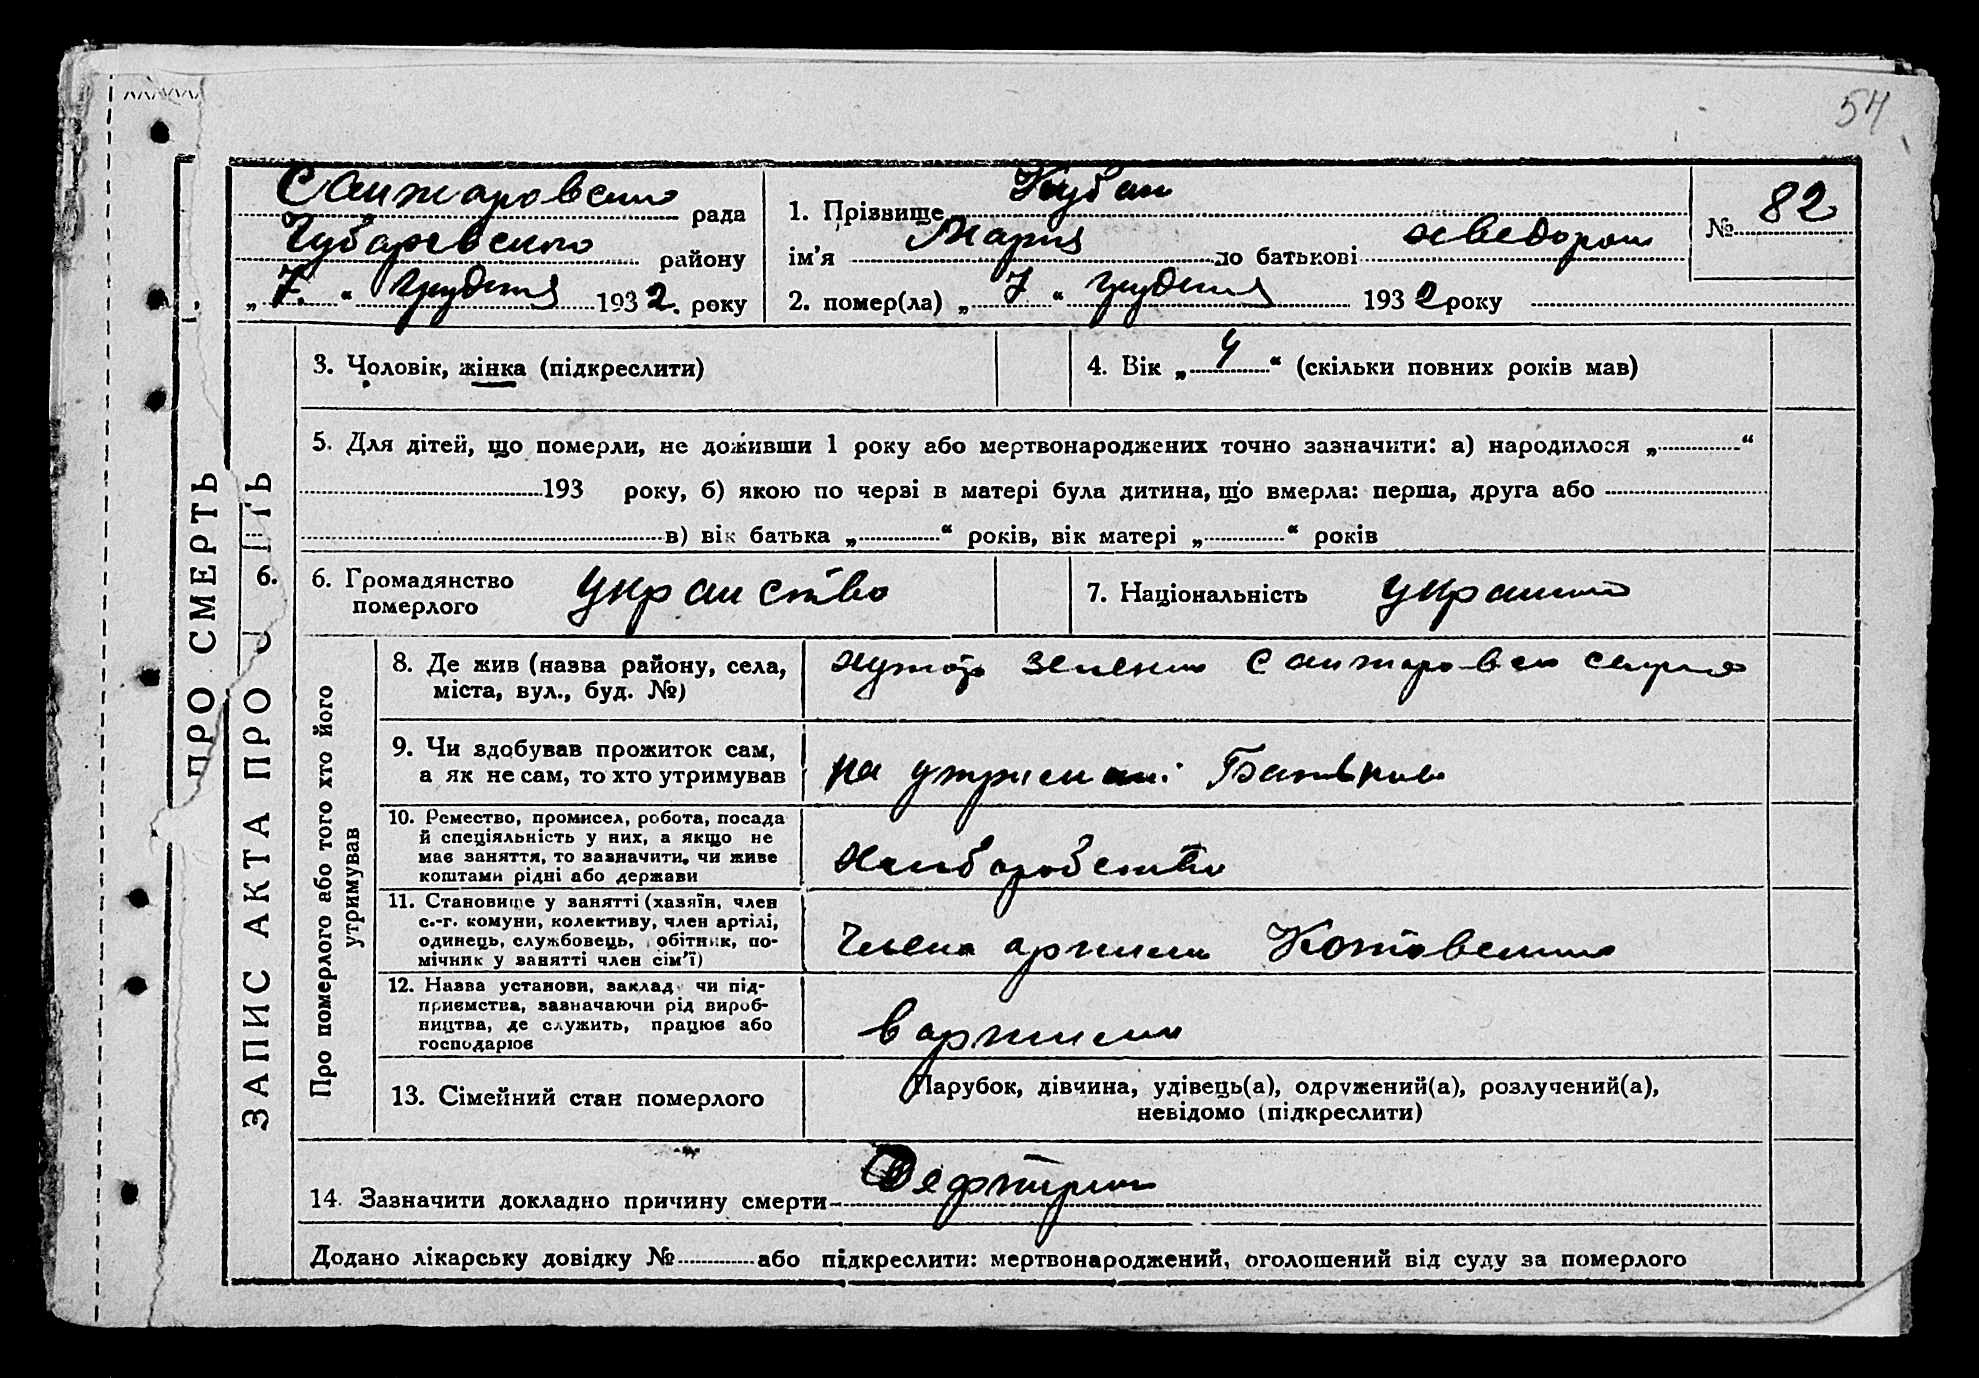 54
Санжаровсько рада
Чубаревсько району
„7.“ грудня 1932. року
1. Прізвище Кубан
ім'я Мария по батькові хведорова
2. помер(ла) „7“ грудня 1932 року
№ 82
3. Чоловік, жінка (підкреслити)
4. Вік „4“ (скільки повних років мав)
5. Для дітей, що померли, не доживши 1 року або мертвонароджених точно зазначити: а) народилося „ “
193 року, б) якою по черзі в матері була дитина, що вмерла: перша, друга або
в) вік батька „ “ років, вік матері „ “ років
6. Громадянство
померлого
7. Національність
ПРО СМЕРТЬ
ЗАПИС АКТА ПРО
6.
Про померлого або того хто його
утримував
8. Де жив (назва району, села,
міста, вул., буд. №)
хутор зелений
9. Чи здобував прожиток сам,
а як не сам, то хто утримував
на утриманні Батьков
10. Ремество, промисел, робота, посада
й спеціяльність у них, а якщо не
має заняття, то зазначити, чи живе
коштами рідні або держави
хлиборобство
11. Становище у занятті (хазяїн, член
с.-г. комуни, колективу, член артілі,
одинець, службовець, робітник, по-
мічник у занятті член сім'ї)
член артили Котовського
12. Назва установи, заклад чи під-
приємства, зазначаючи рід вироб-
ництва, де служить, працює або
господарює
в артили
13. Сімейний стан померлого
Парубок, дівчина, удівець(а), одружений(а), розлучений(а),
невідомо (підкреслити)
14. Зазначити докладно причину смерти Дефтирит
Додано лікарську довідку № або підкреслити: мертвонароджений, оголошений від суду за померлого